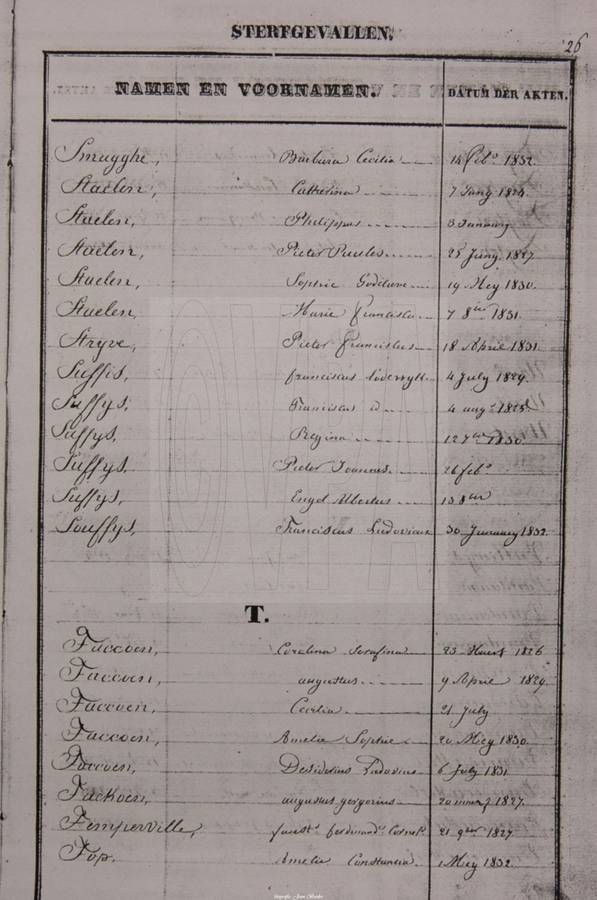 STERFGEVALLEN.
26
NAMEN EN VOORNAMEN. DATUM DER AKTEN.
Smagghe, Barbara Cecilia 14 feb.o 1832.
Staelen, Catharina 7 Juny 1824.
Staelen, Philippus 3 January
Staelen, Pieter 25 Juny 1827
Staelen, Sophie Godelieve 19 Mey 1830.
Staelen, Marie francisca 7 8ber 1831.
Stryve, Pieter franciscus 18 April 1831.
Suffis, franciscus 4 July 1824.
Suffys, Franciscus D 4 aug.t 1825.
Suffys, Regina 12 1830
Suffys, Pieter Joannes. 26 feb.o
Suffys, Engel Albertus 13 8ber
Souffys, Franciscus Ludovicus 30 January 1832.
T.
Taccoen, Carolina Serafina 23 Maert 1826
Taccoen, augustus 9 April 1829.
Taccoen, Cecilia 21 July
Taccoen, Amelie Sophie 20 Mey 1830.
Taccoen, Desiderius Ludovicus 6 July 1831
Tackoen, augustus gregorius 20 1827.
Temperville, faust.s ferdinand.s Cornel.s 21 9ber 1827
Top. Amelia Constantia 1 Mey 1832.